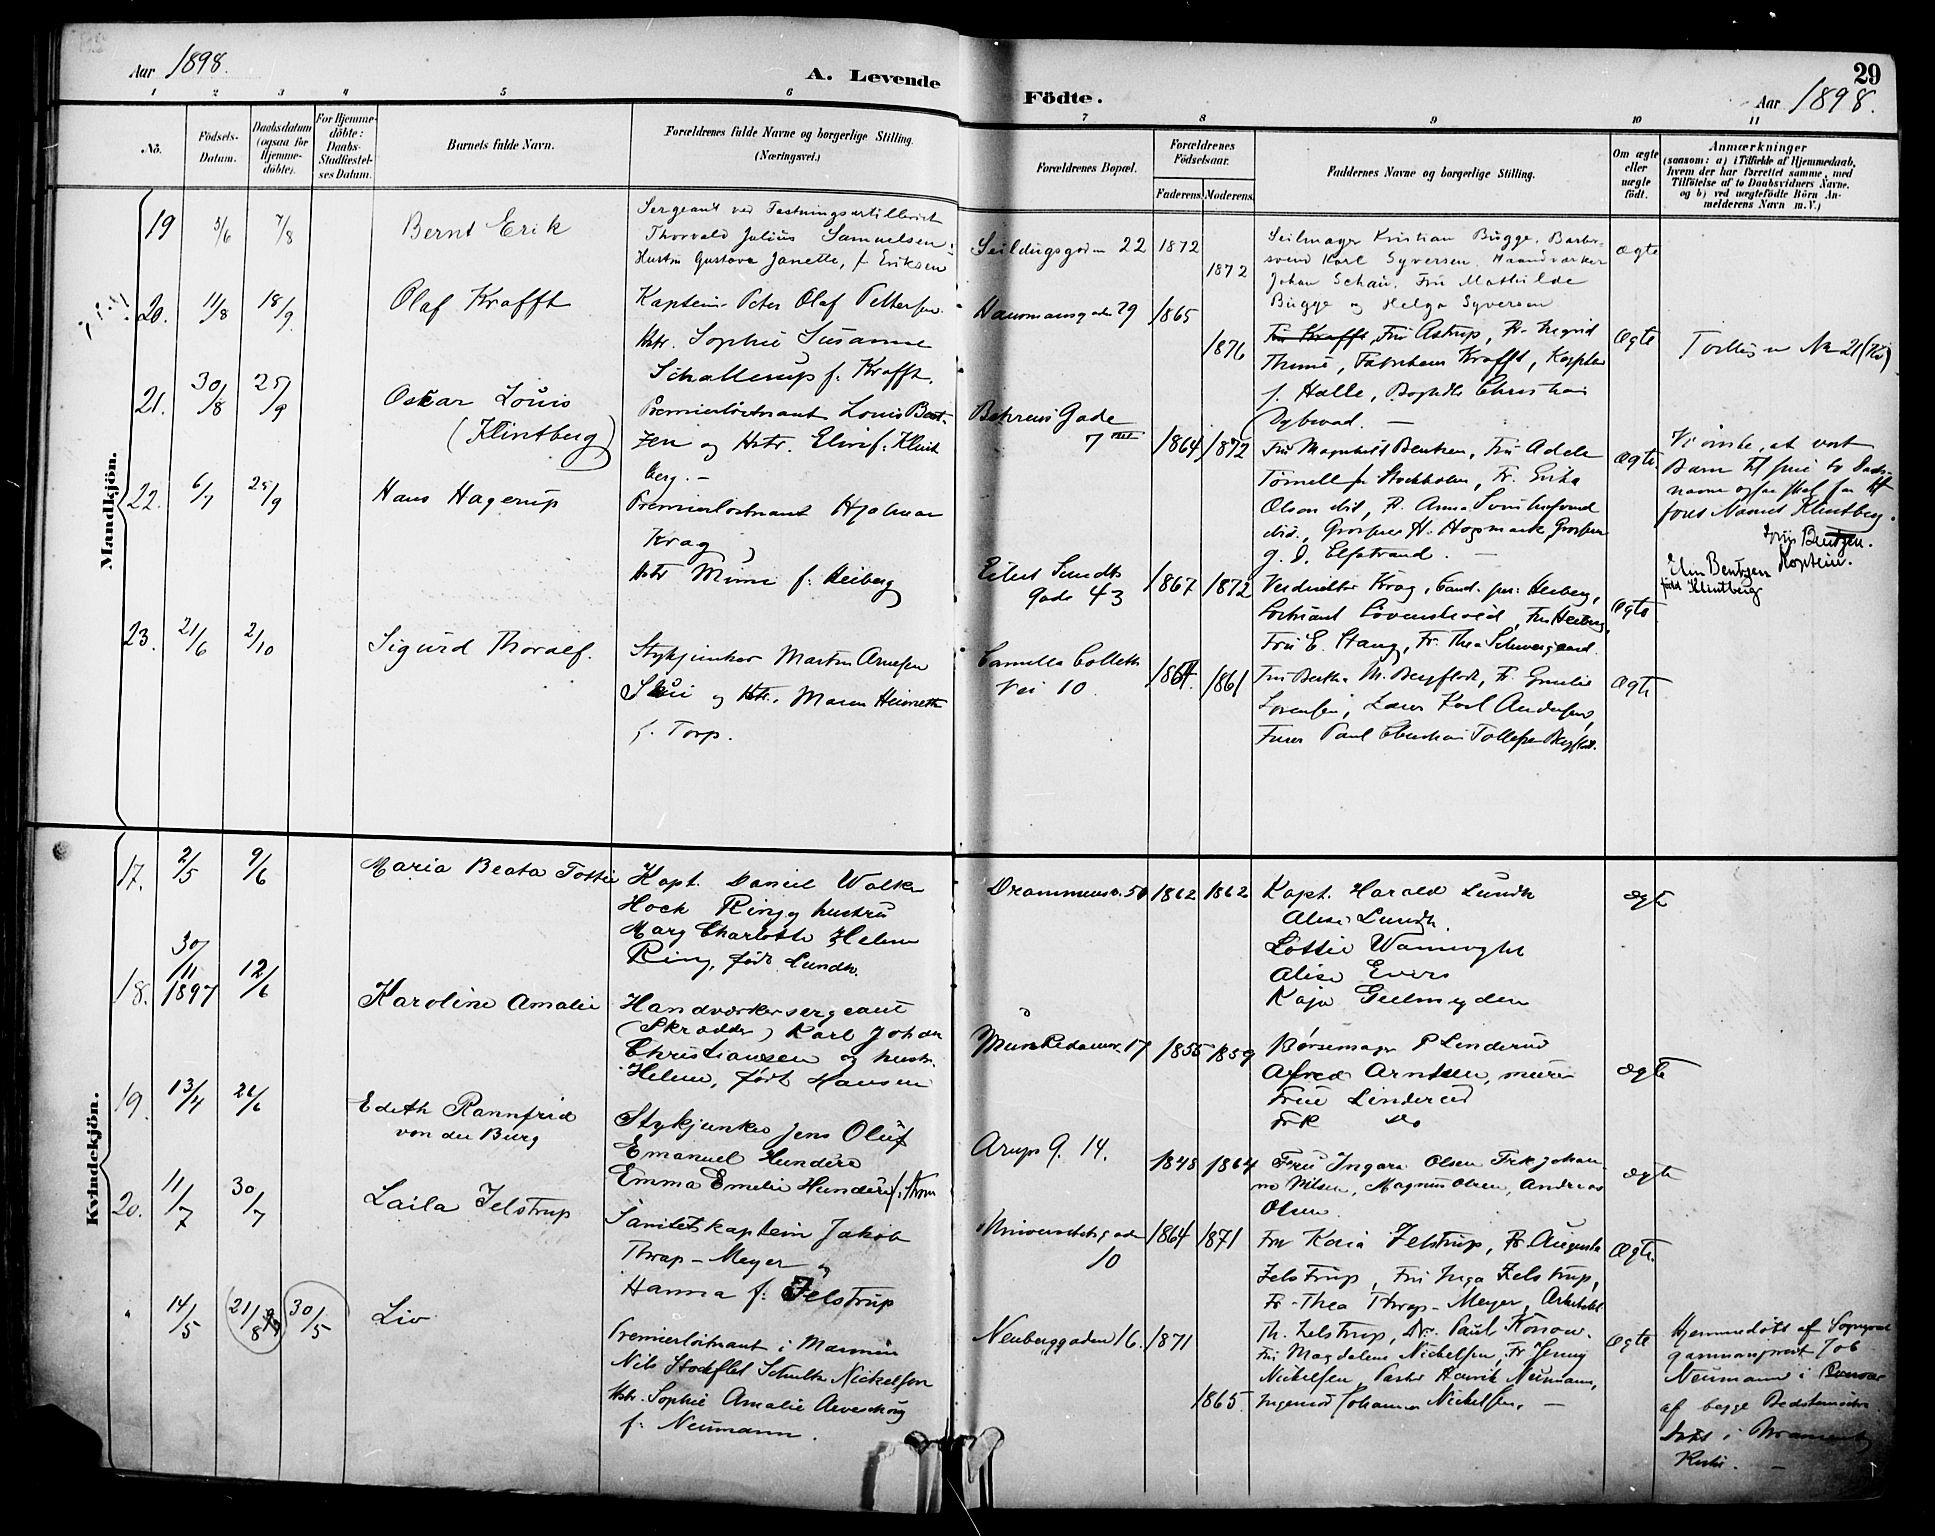 Aar 1898.
A. Levende
Födte.
29
Aar 1898.
1 2 3 4 5 6 7 8 9 10 11
No.
Födsels-
Datum.
Daabsdatum
(ogsaa for
Hjemme-
döbte).
For Hjemme-
döbte:
Daabs-
Stadfæstel-
ses Datum.
Barnets fulde Navn.
Forældrenes fulde Navne og borgerlige Stilling.
(Næringsvei.)
Forældrenes Bopæl.
Forældrenes
Födselsaar.
Faderens. Moderens.
Faddernes Navne og borgerlige Stilling.
Om ægte
eller
uægte
födt.
Anmærkninger
(saasom: a) i Tilfælde af Hjemmedaab,
hvem der har forrettet samme, med
Tilföielse af to Daabsvidners Navne,
og b) ved uægtefödte Börn An-
melderens Navn m.V.)
Mandkjön.
19 5/6 7/8 Bernt Erik
Sergeant ved Festningsartilleriet
Thorvald Julius Samuelsen
Hustru Gustava Janette, f. Eriksen
Seildugsgaden 22 1872
1872
Seilmager Kristian Bugge, Barber-
svend Karl Syversen, Haandværker
Johan Schau, Fru Mathilde
Bugge og Helga Syversen
ægte
20. 11/8 18/9 Olaf Krafft
Kaptein Peter Olaf Pettersen
Hstr. Sophie Susanne
Schallerup f. Krafft.
Hausmansgaden 29 1865
1876
Fru Krafft, Fru Astrup, Fr. Sigrid
Thime, Fabrikeier Krafft, Kaptein
J. Halle, Boghdlr Christian
Dybwad. —
Ægte
21. 30/8 25/9 Oskar Louis
(Klintberg)
Premierløitnant Louis Bent-
zen og Hstr. Elin f. Klint
berg. —
Behrens Gade
7 1864 1872
Fru Magnhild Bentzen, Fru Adele
Törnell fr Stockholm, Fr. Erika
Olson did, Fr. Anna
did., Grosserer H. Hagmark, Grosserer
G. J. Elfstrand. —
Ægte.
Vi ønske, at vort
Barn til sine to Døbe-
navne ogsaa skal faa til-
føiet Navnet Klintberg.
Louis Bentzen.
Kaptein.
Elin Bentzen
født Klintberg
22. 6/7 25/9 Hans Hagerup
Premierløitnant Hjalmar
Krag
Hstr Mimi f. Heiberg
Eilert Sundts
gade 43 1867 1872
Veidirektør Krag, Cand. jur. Heiberg,
Løitnant Løvenskiold, Fru Heiberg,
Fru E. Stang, Fr. Thea Schweigaard.
Ægte
23. 21/6 2/10 Sigurd Thoralf.
Stykjunker Martin Arnesen
Skui og Hstr. Maren Henriette
f. Torp.
Camilla Colletts
Vei 10. 1864 1861
Fru Bertha M. Bergflødt, Fr. Emilie
Sorensen, Lærer Karl Andersen,
Furer Paul Christian Tollefsen Bergflødt.
Ægte
Kvindekjön.
17. 2/5 9/6 Maria Beata Tottie
Kapt. Daniel Walker
Hock Ring og hustru
Mary Charlotte Helene
Ring, født Lundh.
Drammensv. 50 1862 1862
Kapt. Harald Lundh
Alise Lundh.
Lottie Wamvoght
Alise Evers
Kaja Geelmuyden
ægte
18. 30/11 1897 12/6 Karoline Amalie
Handværkersergeant
(Skrædder) Karl Johan
Christiansen og hustr.
Helene, født Hansen
Munkedamsv. 17 1855 1859
Børsemager P Linderud
Alfred Arntsen, murer
Frue Linderud
Frk do
ægte
19. 13/4 26/6 Edith Rannfrid
von der Burg
Stykjunker Jens Oluf
Emanuel Hundere
Emma Emelie Hundere f.
Arups g. 14. 1848 1864
Fru Ingara Olsen Frk Johan
ne Nilsen, Magnus Olsen, Andreas
Olsen.
ægte
20. 11/7 30/7 Laila Jelstrup
Sanitetskaptein Jakob
Thrap-Meyer og
Hanna f. Jelstrup
Universitetsgaden
10 1864 1871
Fru Karia Jelstrup, Fr. Augusta
Jelstrup, Fru Inga Jelstrup,
Fr. Thea Thrap-Meyer, Arkitekt
Th. Jelstrup, Dr. Paul Rosow.
Ægte.
" 14/5 21/8 30/5 Liv
Premierløitnant i Marinen
Nils Stockfleth Schultz Nickelsen
Hstr. Sophie Amalie Arveschoug
f. Neumann.
Neuberggaden 16. 1871
1865.
Fru Magdalene Nickelsen, Fr Jenny
Nickelsen, Pastor Henrik Neumann,
Ingeniør Johannes Nickelsen. —
Ægte
Hjemmedøbt af Sogneprest
Job
Neumann i
af begge Bedstemødre
døbt i Bramanes
Kirke. —